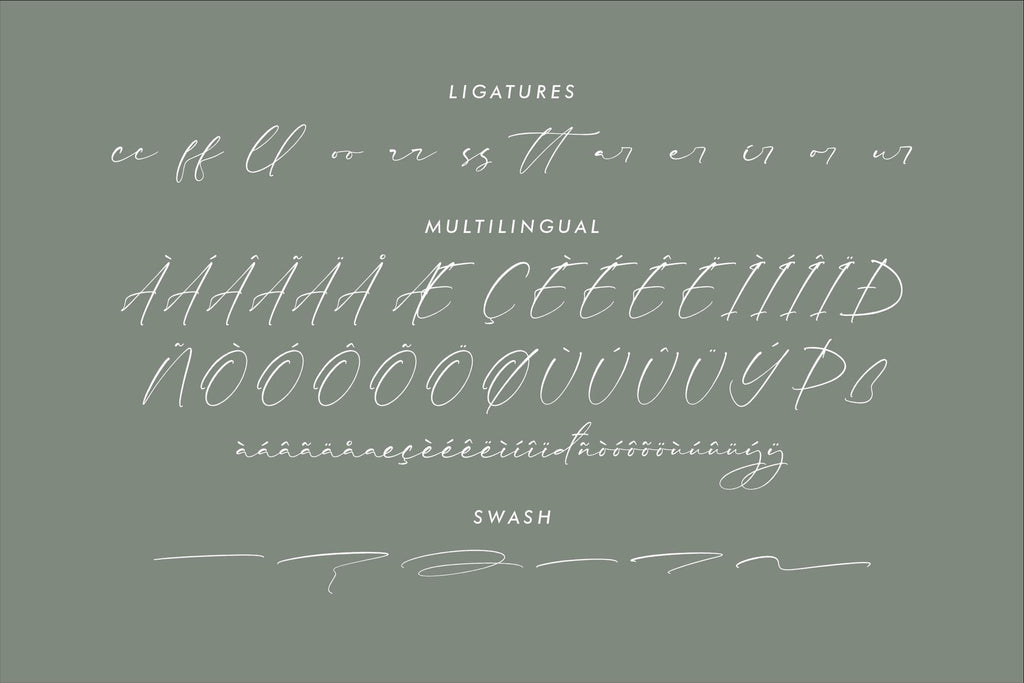 LIGATURES
cc ff ll oo rr ss tt ar er ir or ur
MULTILINGUAL
ÀÁÂÃÄÅ Æ ÇÈÉÊËÌÍÎÏÐ
ÑÒÓÔÕÖØÙÚÛÜÝÞß
àáâãäåæçèéêëìíîïđñòóôõöùúûüýÿ
SWASH